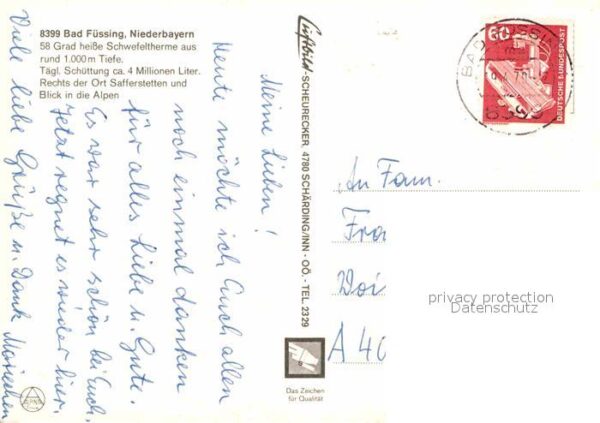 8399 Bad Füssing, Niederbayern
58 Grad heiße Schwefeltherme aus
rund 1.000 m Tiefe.
Tägl. Schüttung ca. 4 Millionen Liter.
Rechts der Ort Safferstetten und
Blick in die Alpen
Meine Lieben!
Heute möchte ich Euch allen
noch einmal danken
für alles Liebe u. Gute.
Es war sehr schön bei Euch.
Jetzt regnet es wieder hier.
Viele liebe Grüße u. Dank Mariechen
Luftbild-SCHEURECKER, 4780 SCHÄRDING/INN - OÖ. - TEL. 2329
Das Zeichen
für Qualität
60
DEUTSCHE BUNDESPOST
BAD FÜSSING
An Fam.
Fra
Woi
A 40
privacy protection
Datenschutz